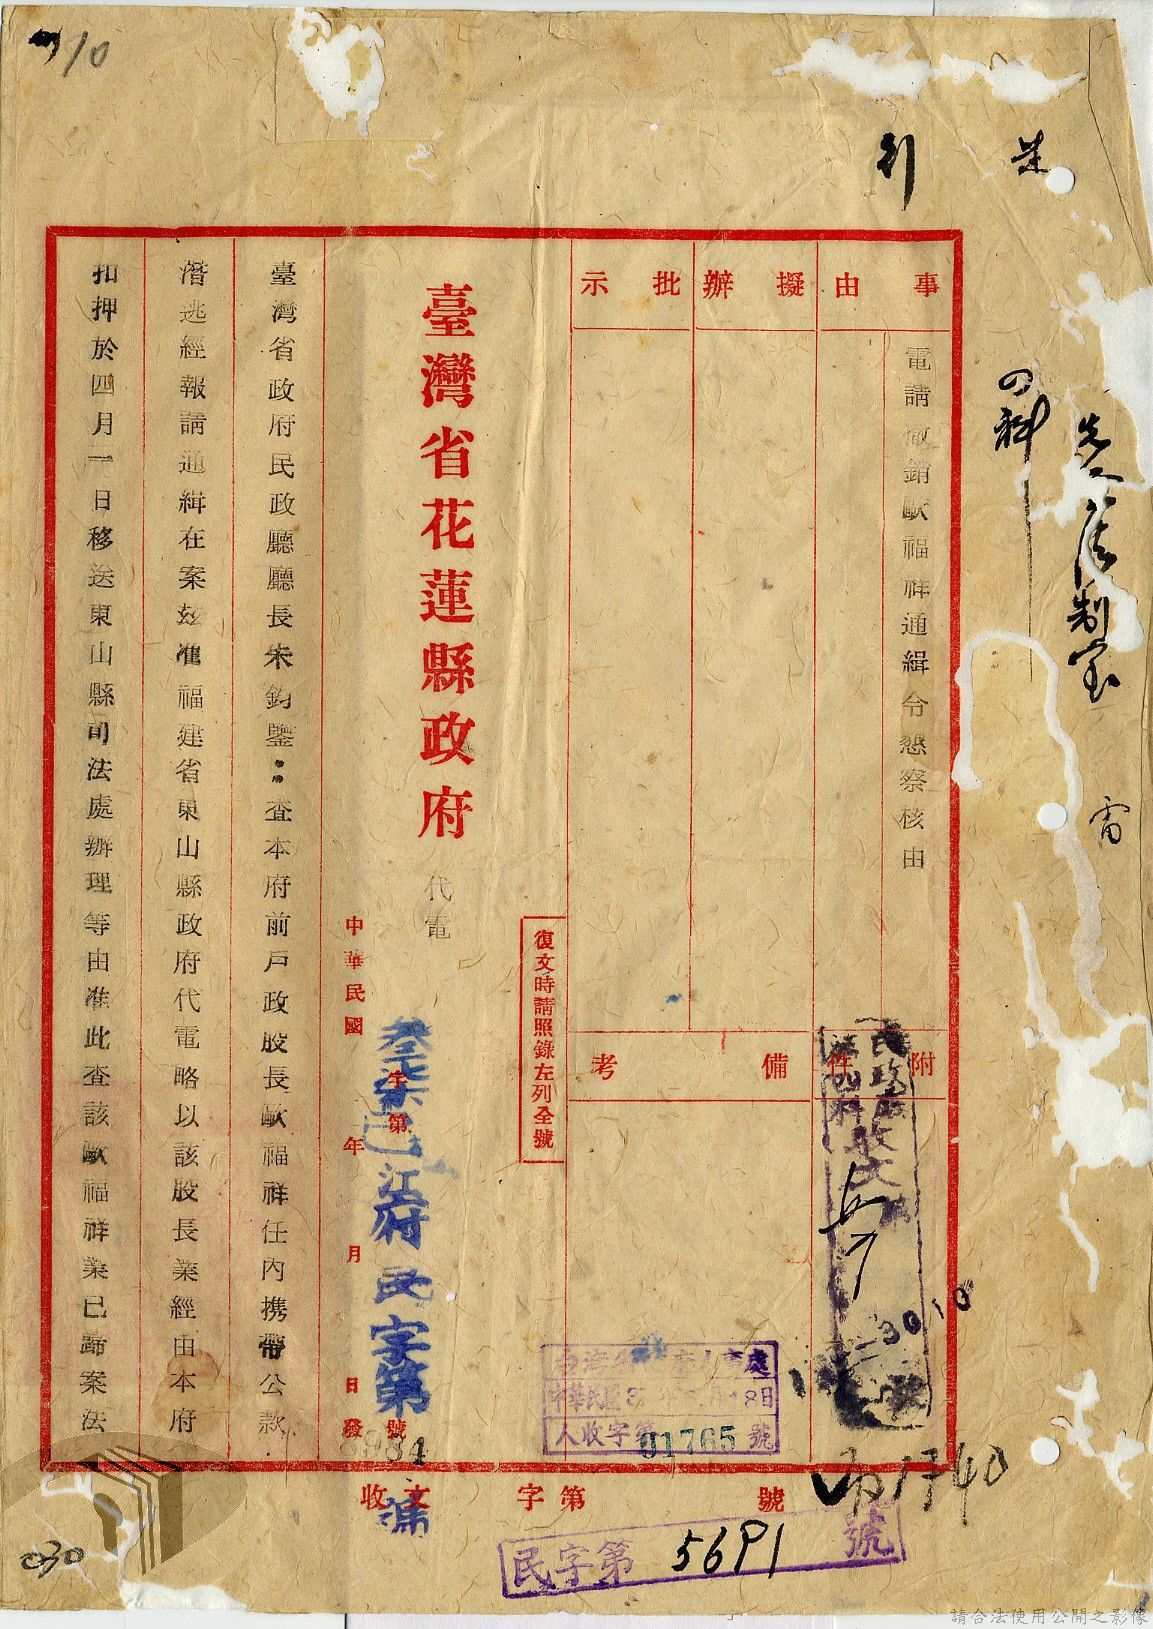 110
引
先會法制室
の科
事由
擬辦
批示
電請撤銷歐福祥通緝令懇察核由
附件
備考
復文時請照錄左列全號
臺灣省花蓮縣政府
代電
中華民國 年 月 日發
字第 號
叁柒巳江府民字第
民政廳
第四科
收文
收文 字第 號
人收字第01765號
民字第5691號
臺灣省政府民政廳廳長朱鈞鑒：查本府前戶政股長歐福祥任內携帶公款
潛逃經報請通緝在案玆准福建省東山縣政府代電略以該股長業經由本府
扣押於四月一日移送東山縣司法處辦理等由准此查該歐福祥業已歸案法
030
請合法使用公開之影像